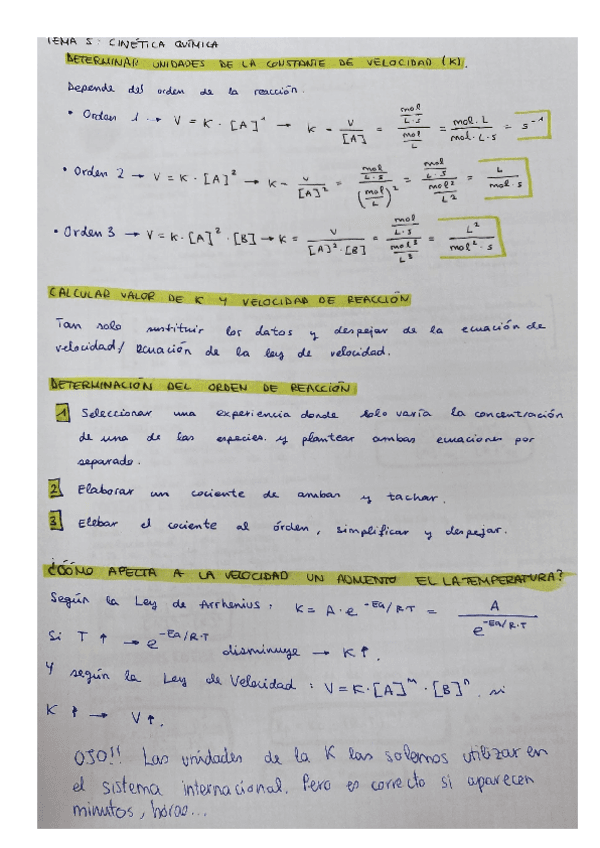 TEMA 5: CINÉTICA QUÍMICA
DETERMINAR UNIDADES DE LA CONSTANTE DE VELOCIDAD (K).
Depende del orden de la reacción.
• Orden 1 → V = K · [A]^1 → K = V/[A] = (mol/L·s)/(mol/L) = mol·L/mol·L·s = s^-1
• Orden 2 → V = K · [A]^2 → K = V/[A]^2 = (mol/L·s)/(mol/L)^2 = (mol/L·s)/(mol^2/L^2) = L/mol·s
• Orden 3 → V = K · [A]^2 · [B] → K = V/[A]^2·[B] = (mol/L·s)/(mol^3/L^3) = L^2/mol^2·s
CALCULAR VALOR DE K Y VELOCIDAD DE REACCIÓN
Tan solo sustituir los datos y despejar de la ecuación de
velocidad/ Ecuación de la ley de velocidad.
DETERMINACIÓN DEL ORDEN DE REACCIÓN
1 Seleccionar una experiencia donde solo varía la concentración
de una de las especies. y plantear ambas ecuaciones por
separado.
2 Elaborar un cociente de ambas y tachar.
3 Elebar el cociente al órden, simplificar y despejar.
¿CÓMO AFECTA A LA VELOCIDAD UN AUMENTO EL LA TEMPERATURA?
Según la Ley de Arrhenius, K = A·e^-Ea/R·T = A/e^-Ea/R·T
Si T ↑ → e^-Ea/R·T disminuye → K↑.
Y según la Ley de Velocidad: V = K·[A]^m·[B]^n, si
K ↑ → V↑.
OJO!! Las unidades de la K las solemos utilizar en
el sistema internacional. Pero es correcto si aparecen
minutos, horas...